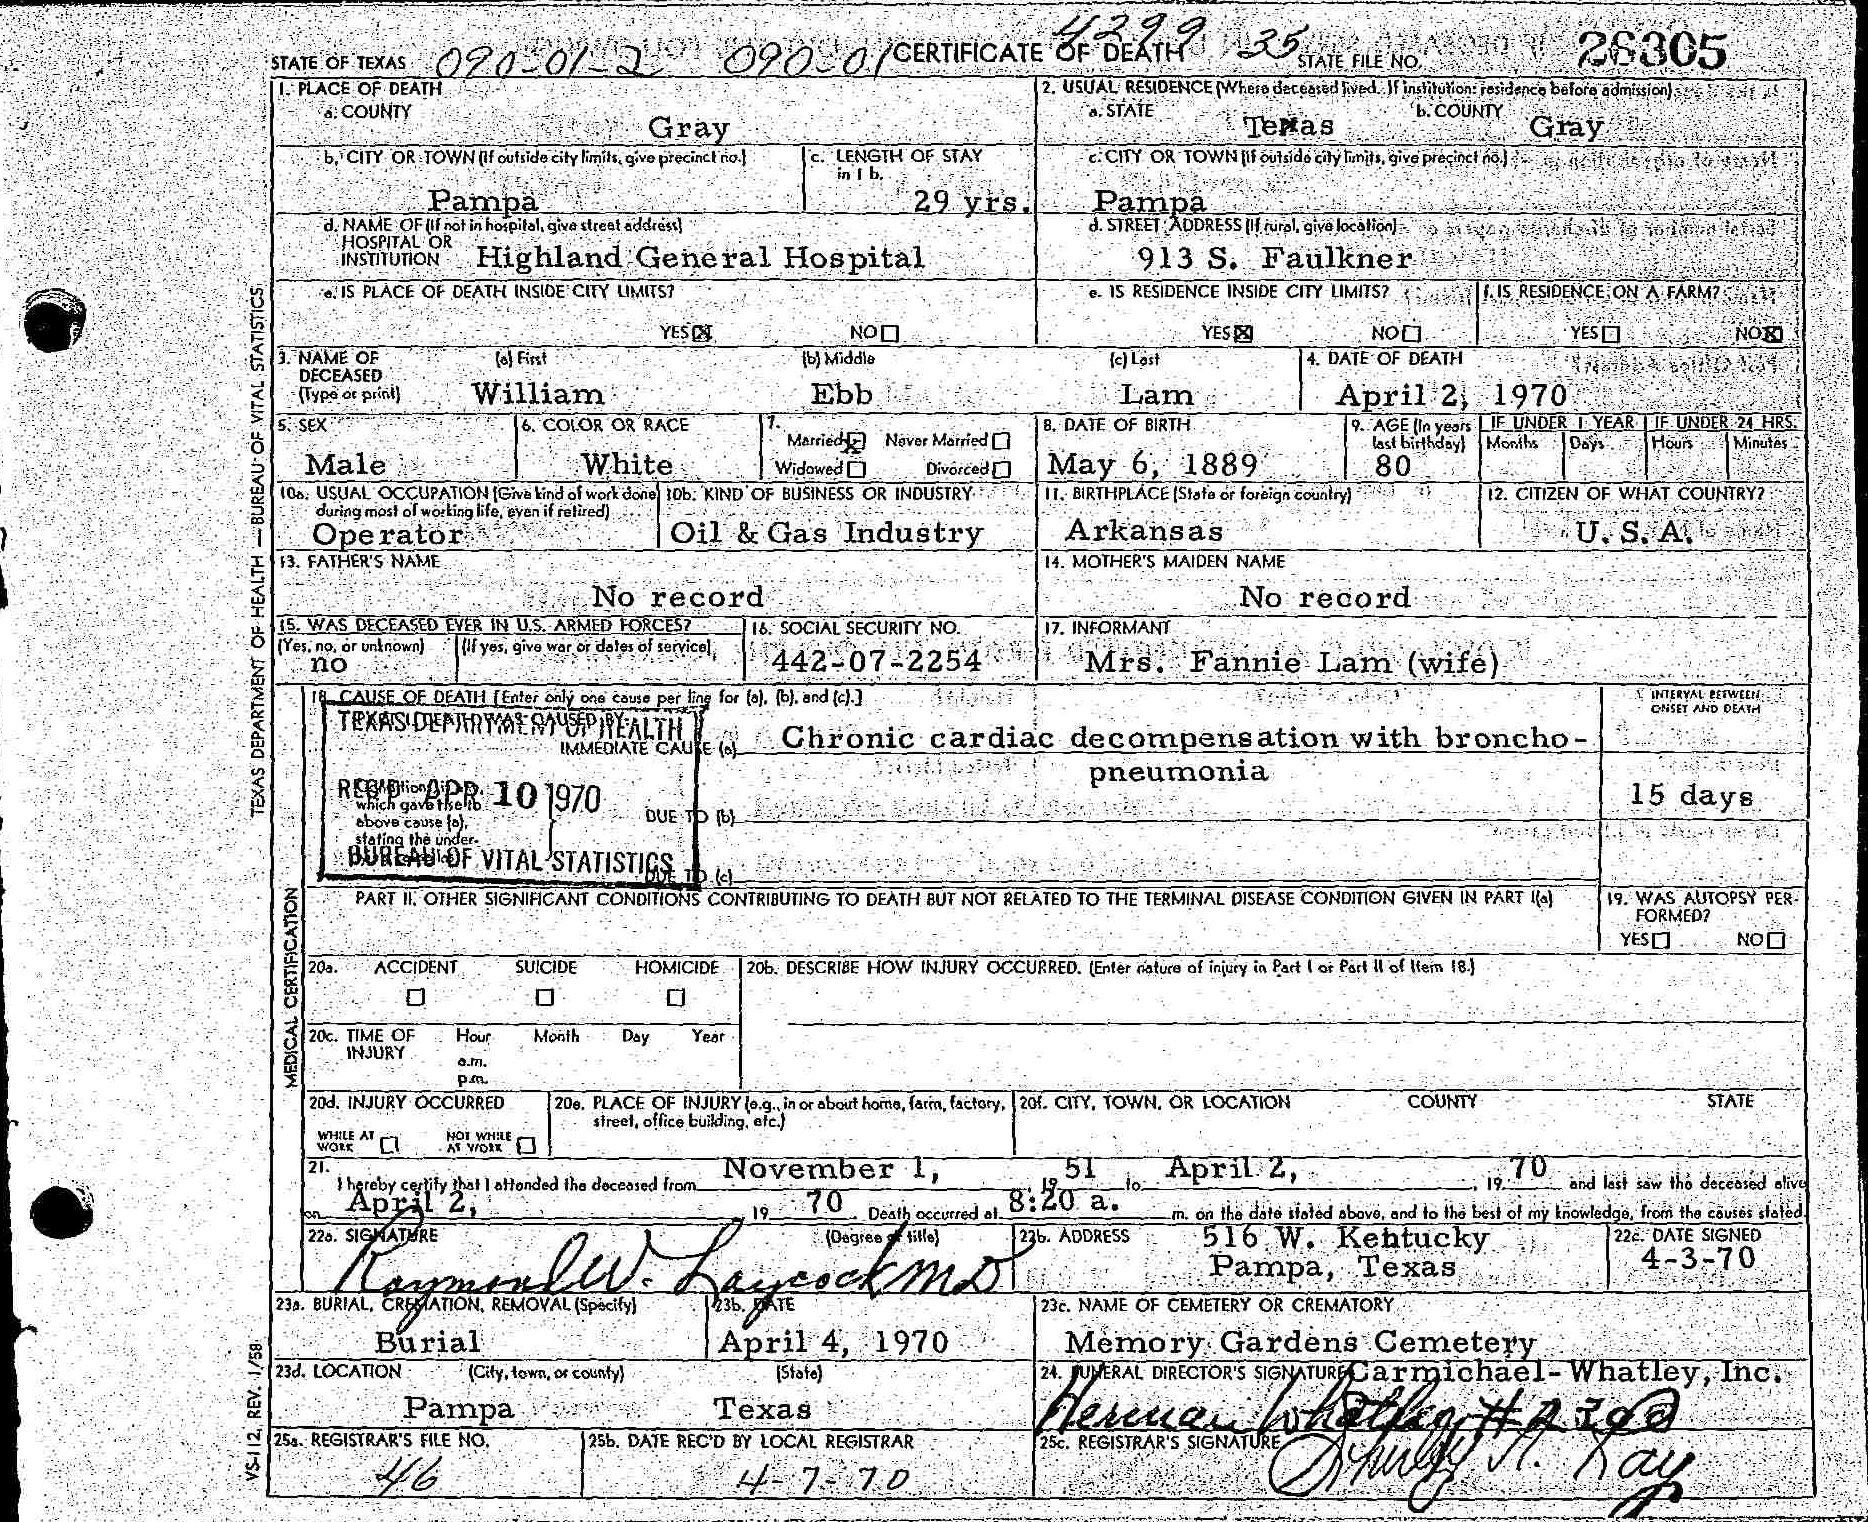 4299 35
STATE OF TEXAS 090-01-2 090-01 CERTIFICATE OF DEATH STATE FILE NO. 26305
1. PLACE OF DEATH
a. COUNTY
Gray
2. USUAL RESIDENCE (Where deceased lived. If institution: residence before admission)
a. STATE Texas b. COUNTY Gray
b. CITY OR TOWN (If outside city limits, give precinct no.)
Pampa
c. LENGTH OF STAY
in 1 b.
29 yrs.
c. CITY OR TOWN (If outside city limits, give precinct no.)
Pampa
d. NAME OF (If not in hospital, give street address)
HOSPITAL OR
INSTITUTION Highland General Hospital
d. STREET ADDRESS (If rural, give location)
913 S. Faulkner
e. IS PLACE OF DEATH INSIDE CITY LIMITS?
YES NO
e. IS RESIDENCE INSIDE CITY LIMITS?
YES NO
f. IS RESIDENCE ON A FARM?
YES NO
3. NAME OF
DECEASED
(Type or print)
(a) First
William
(b) Middle
Ebb
(c) Last
Lam
4. DATE OF DEATH
April 2, 1970
5. SEX
Male
6. COLOR OR RACE
White
7.
Married Never Married
Widowed Divorced
8. DATE OF BIRTH
May 6, 1889
9. AGE (In years
last birthday)
80
IF UNDER 1 YEAR IF UNDER 24 HRS.
Months Days Hours Minutes
10a. USUAL OCCUPATION (Give kind of work done
during most of working life, even if retired)
Operator
10b. KIND OF BUSINESS OR INDUSTRY
Oil & Gas Industry
11. BIRTHPLACE (State or foreign country)
Arkansas
12. CITIZEN OF WHAT COUNTRY?
U. S. A.
13. FATHER'S NAME
No record
14. MOTHER'S MAIDEN NAME
No record
15. WAS DECEASED EVER IN U.S. ARMED FORCES?
(Yes, no, or unknown) (If yes, give war or dates of service)
no
16. SOCIAL SECURITY NO.
442-07-2254
17. INFORMANT
Mrs. Fannie Lam (wife)
18. CAUSE OF DEATH [Enter only one cause per line for (a), (b), and (c).]
INTERVAL BETWEEN
ONSET AND DEATH
TEXAS DEPARTMENT OF HEALTH
IMMEDIATE CAUSE (a) Chronic cardiac decompensation with broncho-
pneumonia
15 days
REC'D APR 10 1970
which gave rise to
above cause (a),
stating the under-
DUE TO (b)
BUREAU OF VITAL STATISTICS
DUE TO (c)
PART II. OTHER SIGNIFICANT CONDITIONS CONTRIBUTING TO DEATH BUT NOT RELATED TO THE TERMINAL DISEASE CONDITION GIVEN IN PART I(a)
19. WAS AUTOPSY PER-
FORMED?
YES NO
20a. ACCIDENT SUICIDE HOMICIDE
20b. DESCRIBE HOW INJURY OCCURRED. (Enter nature of injury in Part I or Part II of Item 18.)
20c. TIME OF
INJURY
Hour Month Day Year
a.m.
p.m.
20d. INJURY OCCURRED
WHILE AT
WORK
NOT WHILE
AT WORK
20e. PLACE OF INJURY (e.g., in or about home, farm, factory,
street, office building, etc.)
20f. CITY, TOWN, OR LOCATION COUNTY STATE
21.
I hereby certify that I attended the deceased from November 1, 19 51 to April 2, 19 70 and last saw the deceased alive
on April 2, 19 70 Death occurred at 8:20 a. m. on the date stated above, and to the best of my knowledge, from the causes stated.
22a. SIGNATURE (Degree or title)
Raymond W. Laycock MD
22b. ADDRESS 516 W. Kentucky
Pampa, Texas
22c. DATE SIGNED
4-3-70
23a. BURIAL, CREMATION, REMOVAL (Specify)
Burial
23b. DATE
April 4, 1970
23c. NAME OF CEMETERY OR CREMATORY
Memory Gardens Cemetery
23d. LOCATION (City, town, or county) (State)
Pampa Texas
24. FUNERAL DIRECTOR'S SIGNATURE Carmichael-Whatley, Inc.
Herman Whatley
25a. REGISTRAR'S FILE NO.
46
25b. DATE REC'D BY LOCAL REGISTRAR
4-7-70
25c. REGISTRAR'S SIGNATURE
TEXAS DEPARTMENT OF HEALTH — BUREAU OF VITAL STATISTICS
MEDICAL CERTIFICATION
VS-112, REV. 1/58